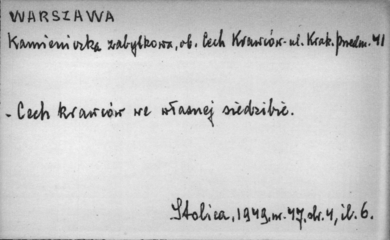 WARSZAWA
Kamieniczka zabytkowa, ob. Cech Krawców - ul. Krak. przedm. 41
- Cech krawców we własnej siedzibie.
Stolica, 1949, nr. 47, str. 4, il. 6.